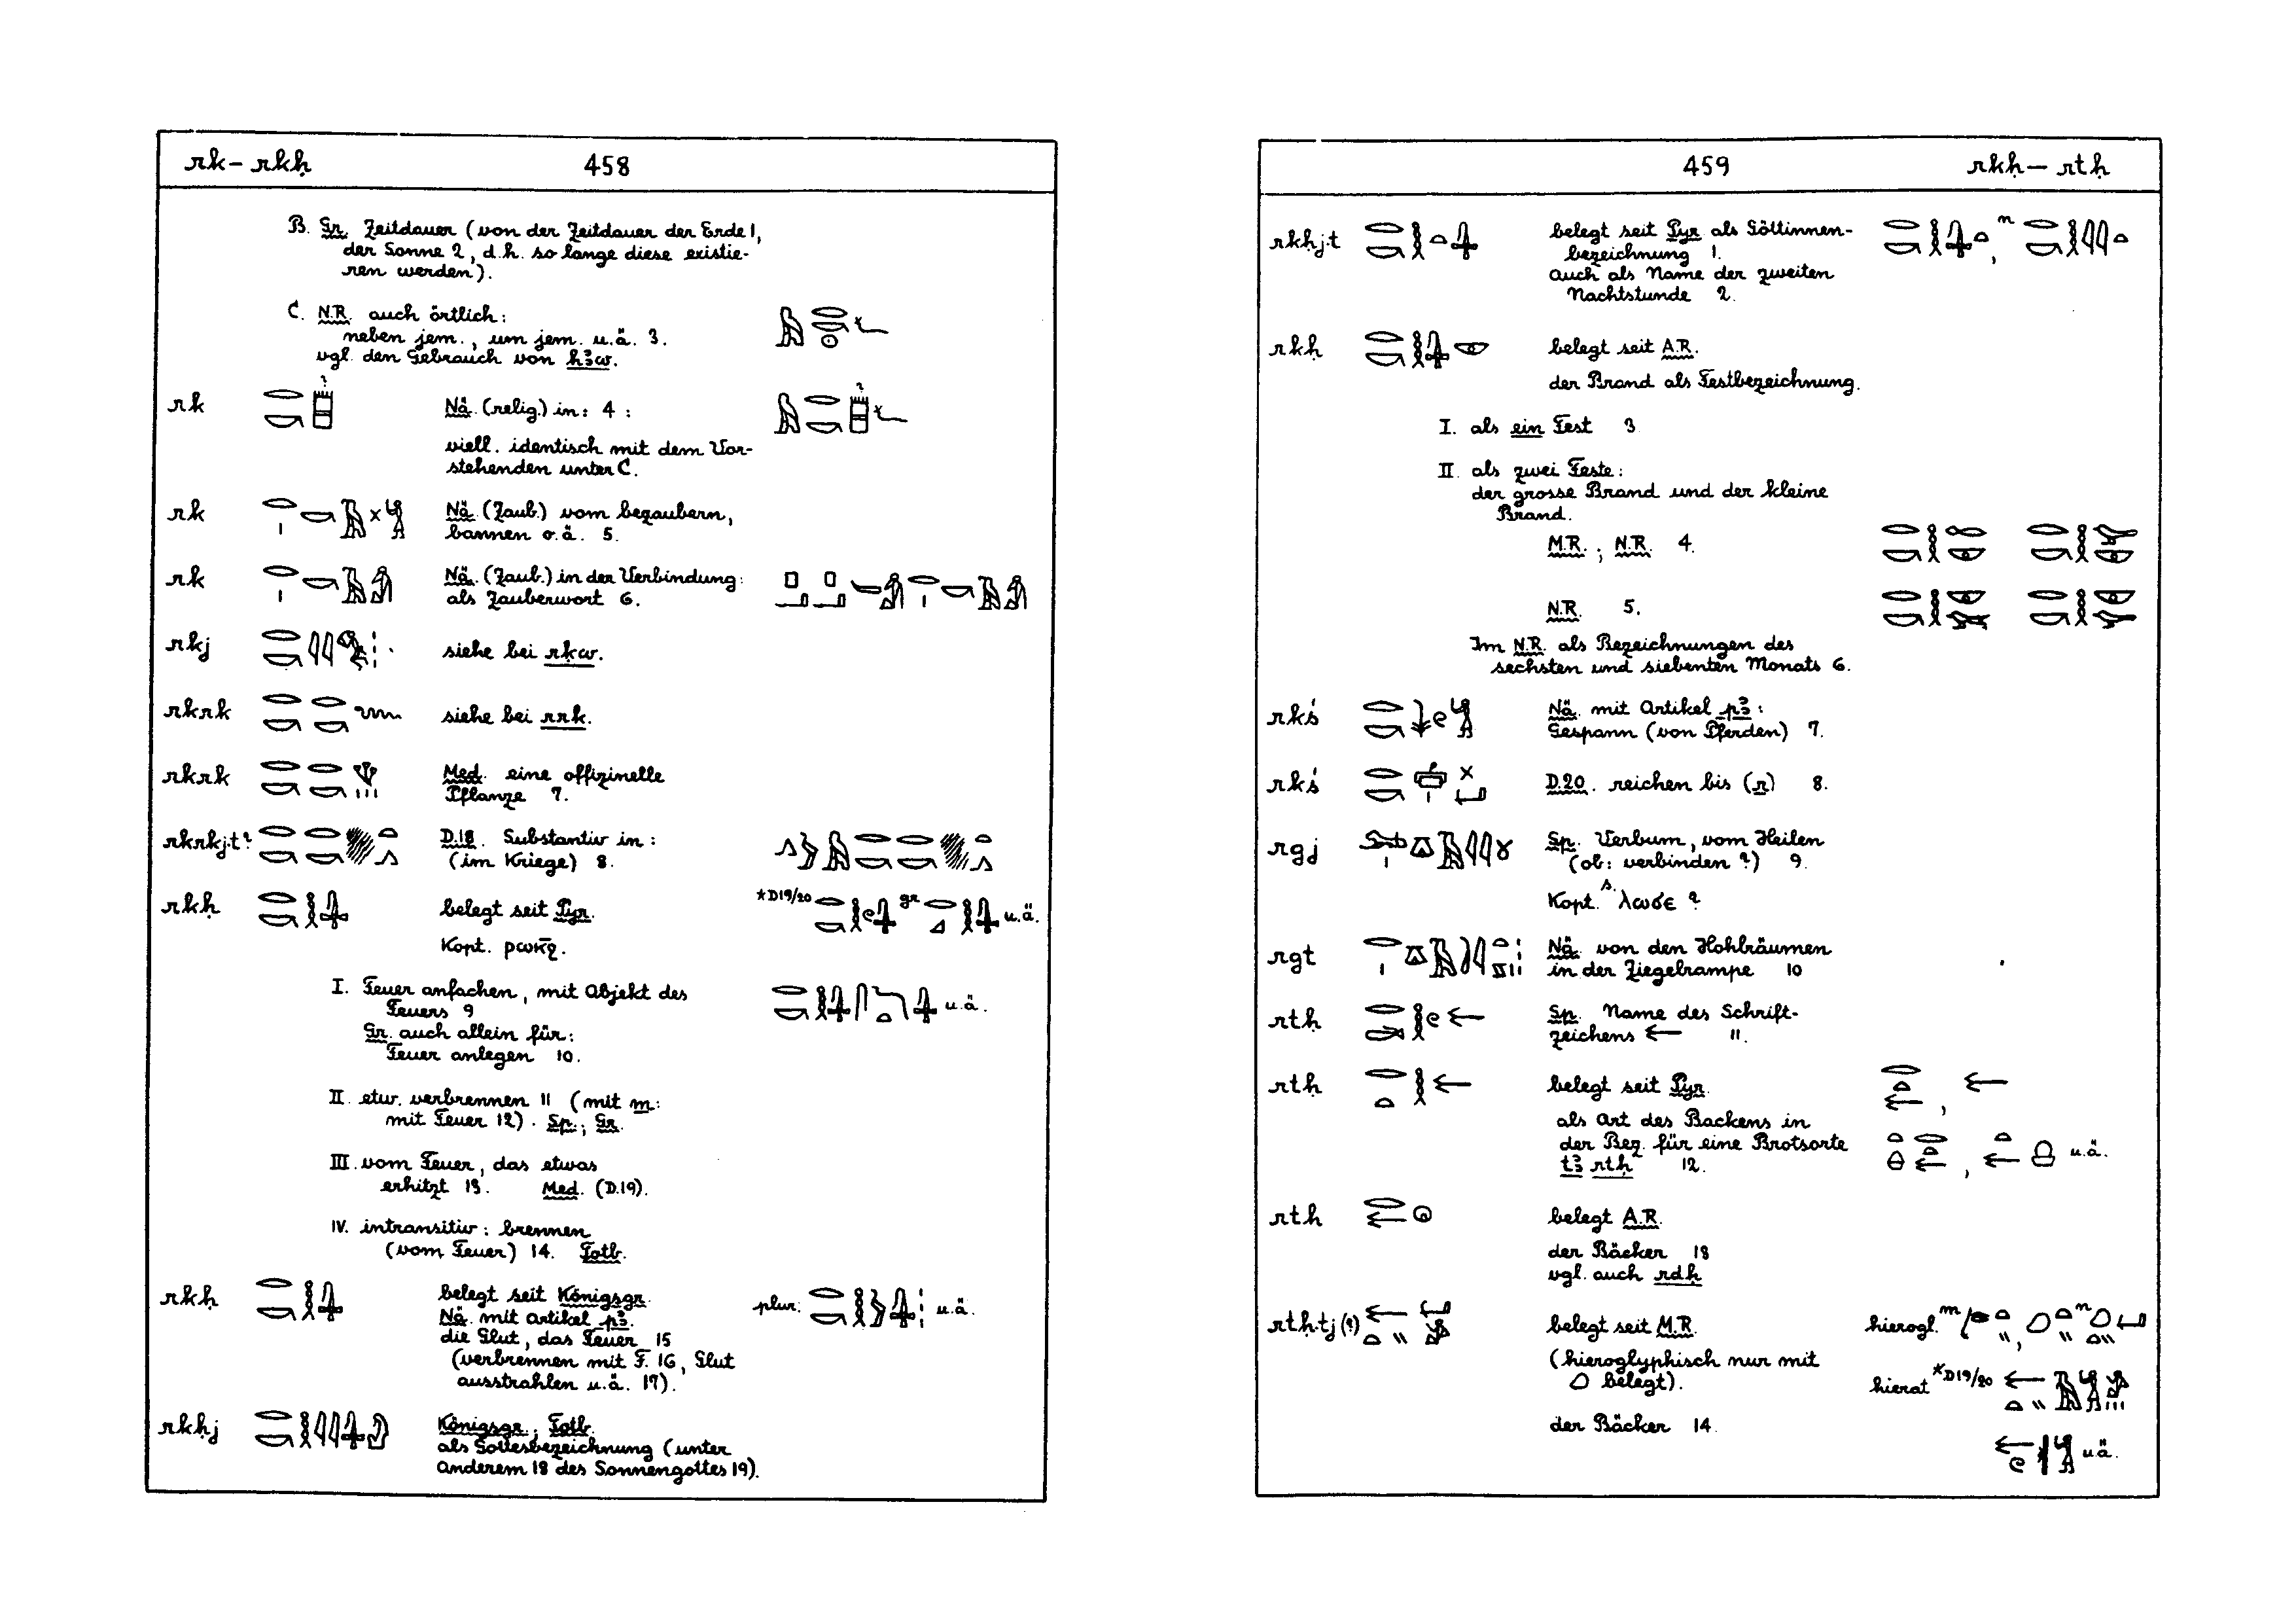 rk – rkḥ 458
B. Gr. Zeitdauer (von der Zeitdauer der Erde 1,
der Sonne 2, d.h. so lange diese existie-
ren werden).
C. N.R. auch örtlich:
neben jem., um jem. u.ä. 3.
vgl. den Gebrauch von hꜣw.
rk Nä. (relig.) in: 4 :
viell. identisch mit dem Vor-
stehenden unter C.
rk Nä. (Zaub.) vom bezaubern,
bannen o.ä. 5.
rk Nä. (Zaub.) in der Verbindung:
als Zauberwort 6.
rkj siehe bei rkw.
rkrk siehe bei rrk.
rkrk Med. eine offizinelle
Pflanze 7.
rkrkj.t? D.18. Substantiv in:
(im Kriege) 8.
rkḥ belegt seit Pyr. *D19/20 gr u.ä.
Kopt. ⲣⲱⲕϩ.
I. Feuer anfachen, mit Objekt des u.ä.
Feuers 9
Gr. auch allein für:
Feuer anlegen 10.
II. etw. verbrennen 11 (mit m:
mit Feuer 12). Sp.; Gr.
III. vom Feuer, das etwas
erhitzt 13. Med. (D.19).
IV. intransitiv: brennen
(vom Feuer) 14. Totb.
rkḥ belegt seit Königsgr. plur. u.ä.
Nä. mit Artikel pꜣ.
die Glut, das Feuer 15
(verbrennen mit F. 16, Glut
ausstrahlen u.ä. 17).
rkḥj Königsgr.; Totb.
als Gottesbezeichnung (unter
anderem 18 des Sonnengottes 19).
459 rkḥ – rtḥ
rkḥj.t belegt seit Pyr als Göttinnen- n ,
bezeichnung 1.
auch als Name der zweiten
Nachtstunde 2.
rkḥ belegt seit A.R.
der Brand als Festbezeichnung.
I. als ein Fest 3
II. als zwei Feste:
der grosse Brand und der kleine
Brand.
M.R.; N.R. 4.
N.R. 5.
Im N.R. als Bezeichnungen des
sechsten und siebenten Monats 6.
rkś Nä. mit Artikel pꜣ:
Gespann (von Pferden) 7.
rkś D.20. reichen bis (r) 8.
rgj Sp. Verbum, vom Heilen
(ob: verbinden?) 9.
Kopt. s. ⲗⲱϭⲉ ?
rgt Nä. von den Hohlräumen
in der Ziegelrampe 10
rtḥ Sp. Name des Schrift-
zeichens 11.
rtḥ belegt seit Pyr. ,
als Art des Backens in
der Bez. für eine Brotsorte
tꜣ rtḥ 12. , u.ä.
rtḥ belegt A.R.
der Bäcker 13
vgl. auch rdḥ
rtḥ.tj (?) belegt seit M.R. hierogl. m , n
(hieroglyphisch nur mit
belegt). hierat *D19/20
der Bäcker 14. u.ä.